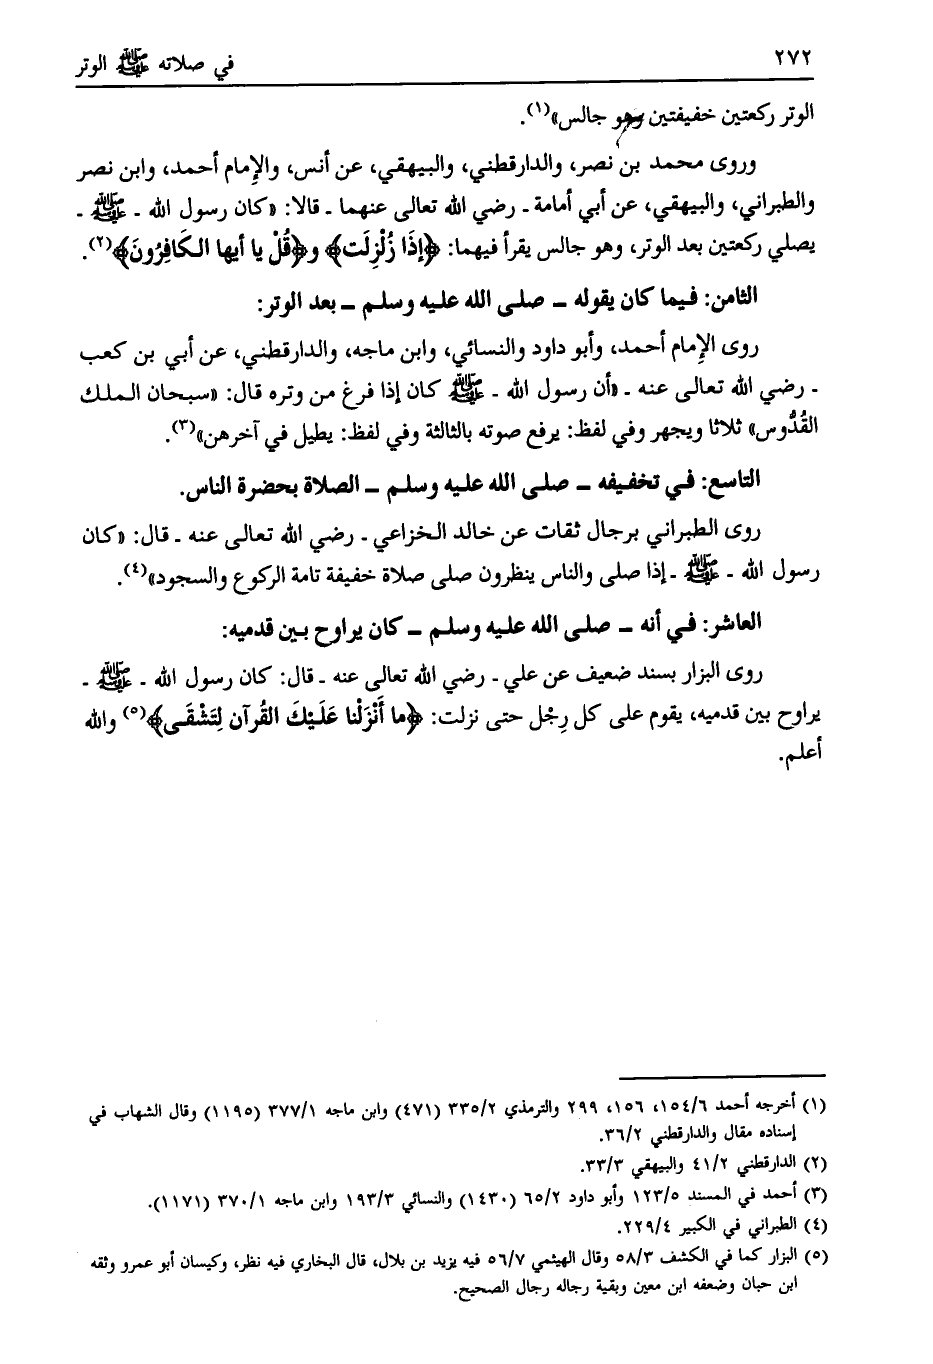 ٢٧٢
في صلاته ﷺ الوتر
الوتر ركعتين خفيفتين وهو جالس»(١).
وروى محمد بن نصر، والدارقطني، والبيهقي، عن أنس، والإمام أحمد، وابن نصر
والطبراني، والبيهقي، عن أبي أمامة ـ رضي الله تعالى عنهما ـ قالا: «كان رسول الله ـ ﷺ ـ
يصلي ركعتين بعد الوتر، وهو جالس يقرأ فيهما: ﴿إِذَا زُلْزِلَت﴾ و﴿قُلْ يا أيها الكَافِرُونَ﴾(٢).
الثامن: فيما كان يقوله ـ صلى الله عليه وسلم ـ بعد الوتر:
روى الإمام أحمد، وأبو داود والنسائي، وابن ماجه، والدارقطني، عن أبي بن كعب
ـ رضي الله تعالى عنه ـ «أن رسول الله ـ ﷺ كان إذا فرغ من وتره قال: «سبحان الملك
القُدُّوس» ثلاثا ويجهر وفي لفظ: يرفع صوته بالثالثة وفي لفظ: يطيل في آخرهن»(٣).
التاسع: في تخفيفه ـ صلى الله عليه وسلم ـ الصلاة بحضرة الناس.
روى الطبراني برجال ثقات عن خالد الخزاعي ـ رضي الله تعالى عنه ـ قال: «كان
رسول الله ـ ﷺ ـ إذا صلى والناس ينظرون صلى صلاة خفيفة تامة الركوع والسجود»(٤).
العاشر: في أنه ـ صلى الله عليه وسلم ـ كان يراوح بين قدميه:
روى البزار بسند ضعيف عن علي ـ رضي الله تعالى عنه ـ قال: كان رسول الله ـ ﷺ ـ
يراوح بين قدميه، يقوم على كل رِجْل حتى نزلت: ﴿ما أَنْزَلْنا عَلَيْكَ القُرآن لِتَشْقَى﴾(٥) والله
أعلم.
(١) أخرجه أحمد ١٥٤/٦، ١٥٦، ٢٩٩ والترمذي ٣٣٥/٢ (٤٧١) وابن ماجه ٣٧٧/١ (١١٩٥) وقال الشهاب في
إسناده مقال والدارقطني ٣٦/٢.
(٢) الدارقطني ٤١/٢ والبيهقي ٣٣/٣.
(٣) أحمد في المسند ١٢٣/٥ وأبو داود ٦٥/٢ (١٤٣٠) والنسائي ١٩٣/٣ وابن ماجه ٣٧٠/١ (١١٧١).
(٤) الطبراني في الكبير ٢٢٩/٤.
(٥) البزار كما في الكشف ٥٨/٣ وقال الهيثمي ٥٦/٧ فيه يزيد بن بلال، قال البخاري فيه نظر، وكيسان أبو عمرو وثقه
ابن حبان وضعفه ابن معين وبقية رجاله رجال الصحيح.